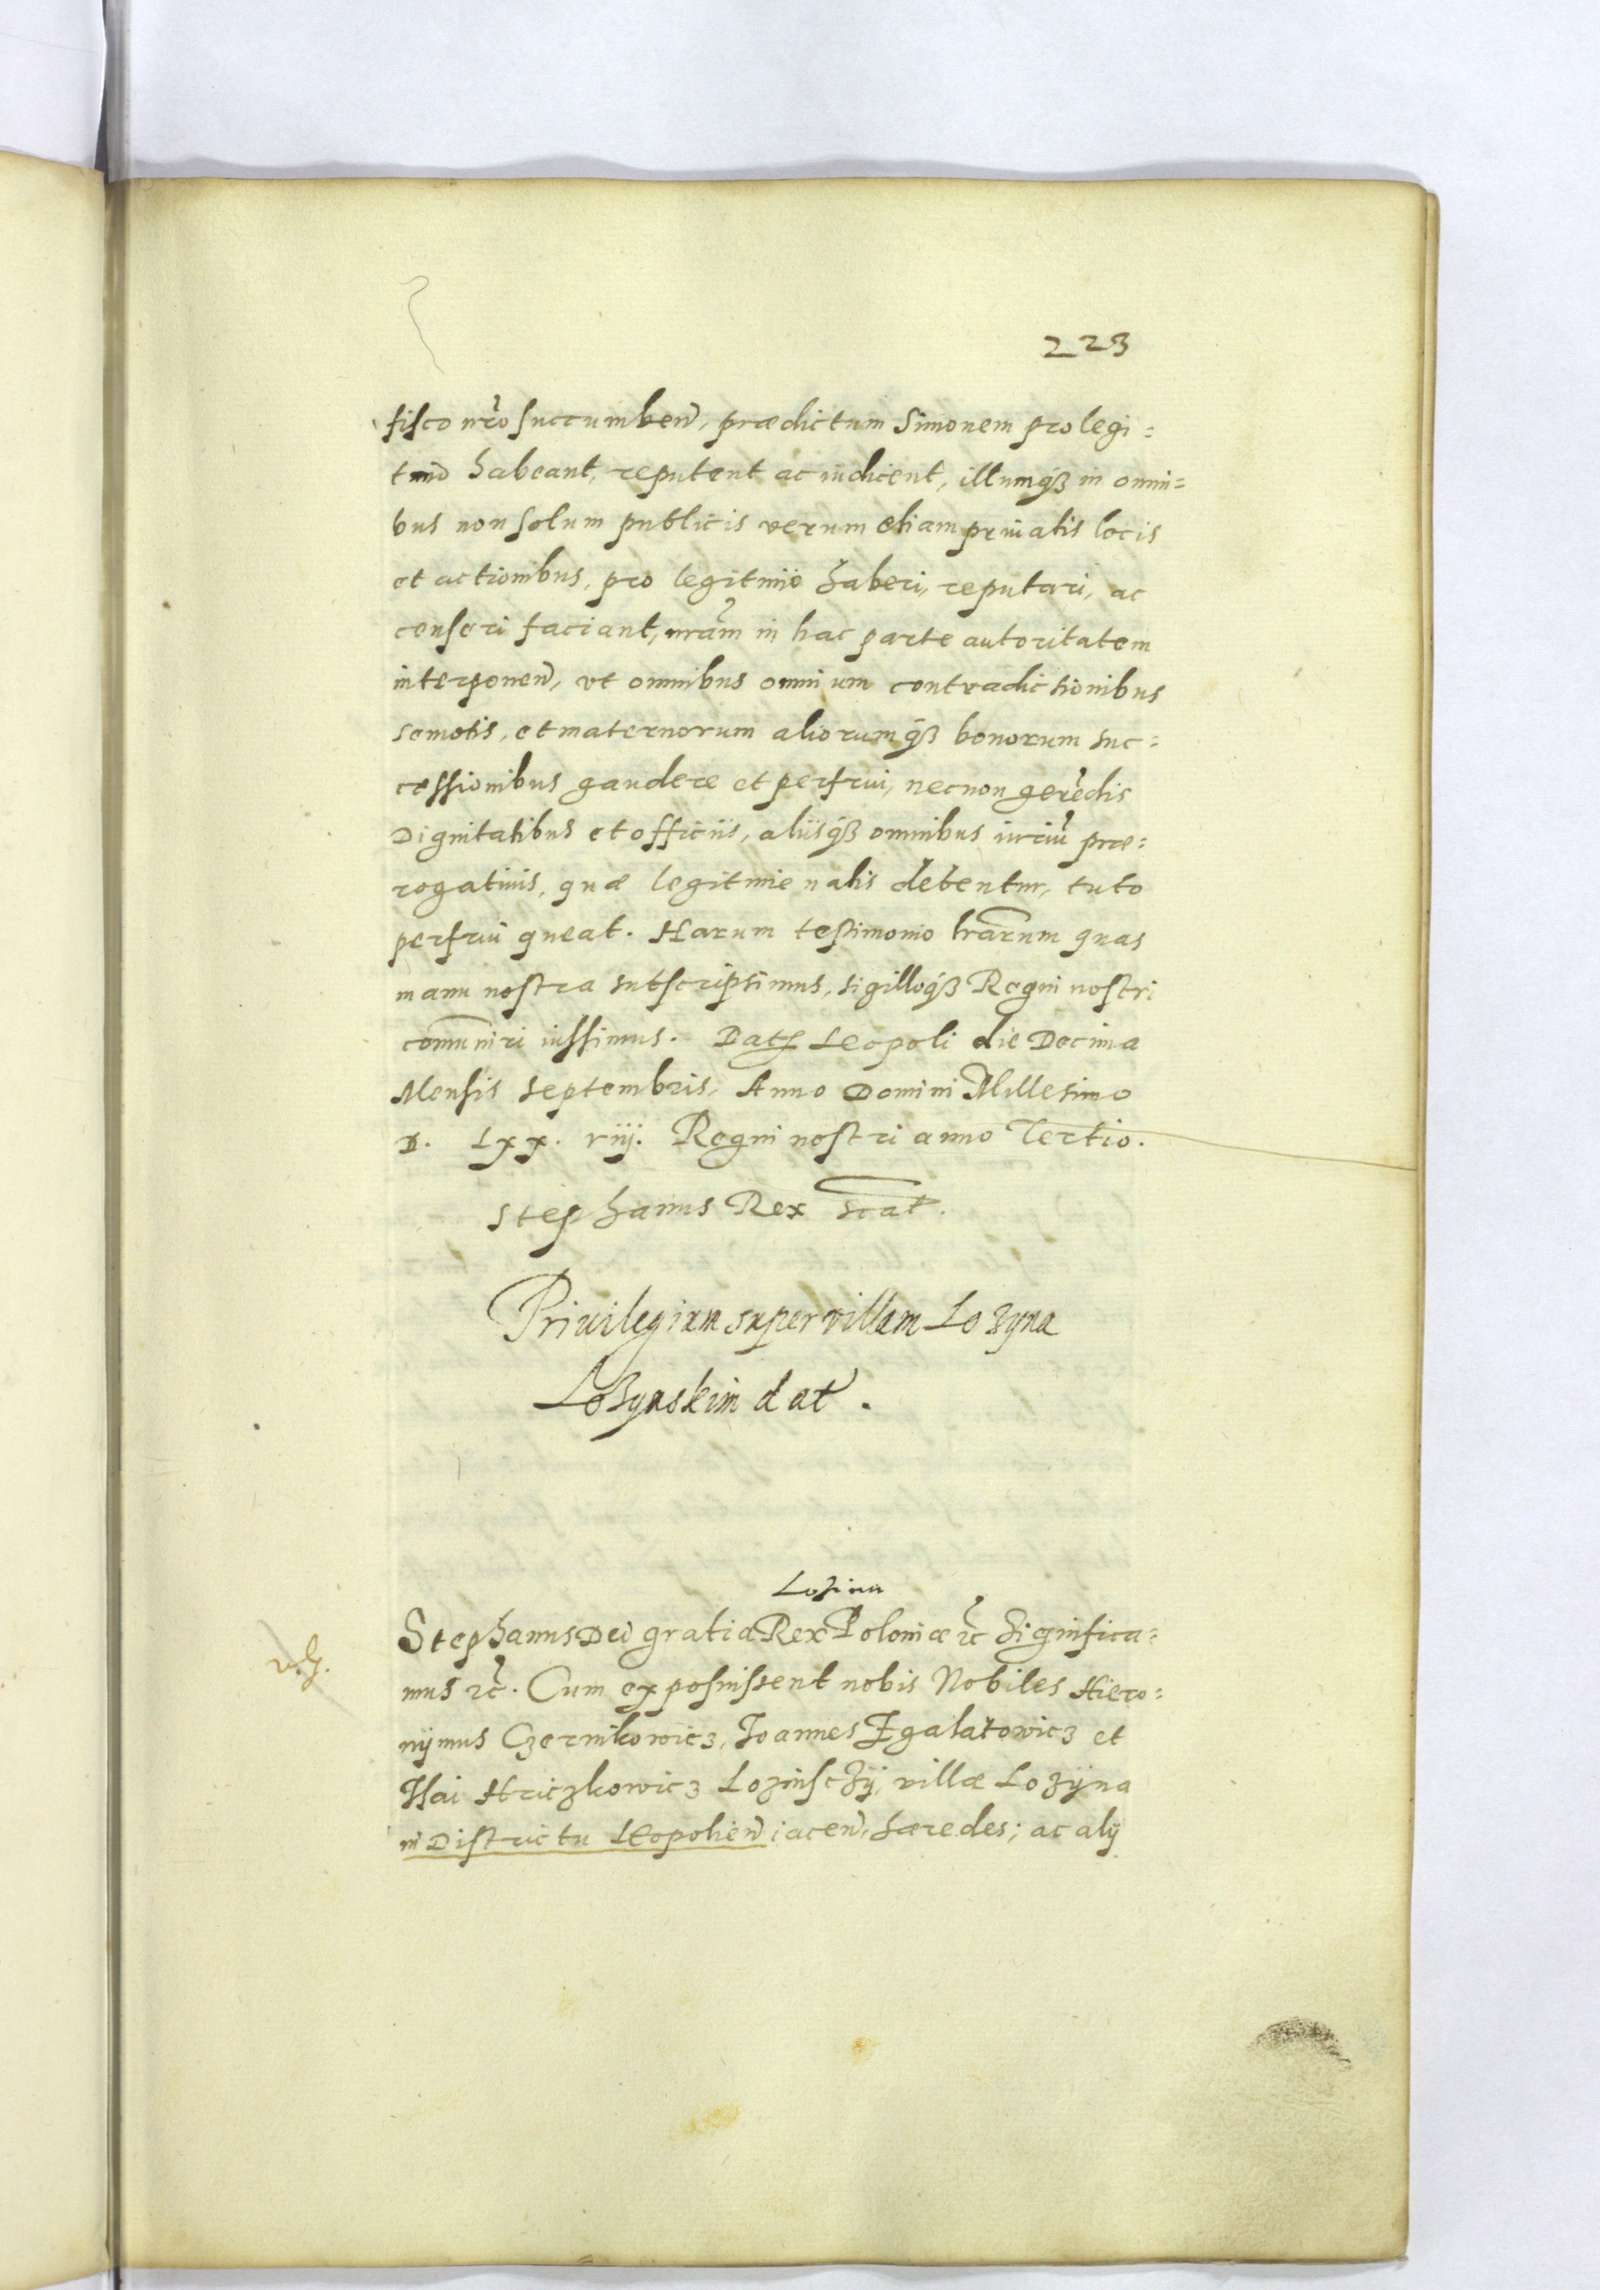 223
fisco nro succumben, prædictum Simonem pro legi=
timo habeant, reputent ac iudicent, illumq3 in omni=
bus non solum publicis verum etiam priuatis locis
et actionibus, pro legitimo haberi, reputari, ac
censeri faciant, nram in hac parte autoritatem
interponen, vt omnibus omnium contradictionibus
semotis, et maternorum aliorumq3 bonorum suc=
cessionibus gaudere et perfrui, necnon geredis
Dignitatibus et officiis, aliisq3 omnibus iuriu præ=
rogatiuis, quæ legitimie natis debentur, tuto
perfrui queat. Harum testimonio lrarum quas
manu nostra subscripsimus, sigilloq3 Regni nostri
comuniri iussimus. Dat Leopoli die Decima
Mensis Septembris, Anno Domini Millesimo
D. Lxx. viij. Regni nostri anno Tertio.
Stephanus Rex scat.
Priuilegium super villam Lozyna
Lozynskim dat.
Lozina
Stephanus Dei gratia Rex Poloniæ &c Significa=
mus &c. Cum exposuissent nobis Nobiles Hiero=
nijmus Czernikowicz, Joannes Zgalatowicz et
Hriczkowicz Lozinsczÿ, villæ Lozÿna
in Districtu Leopolien iacen, hæredes; ac alij